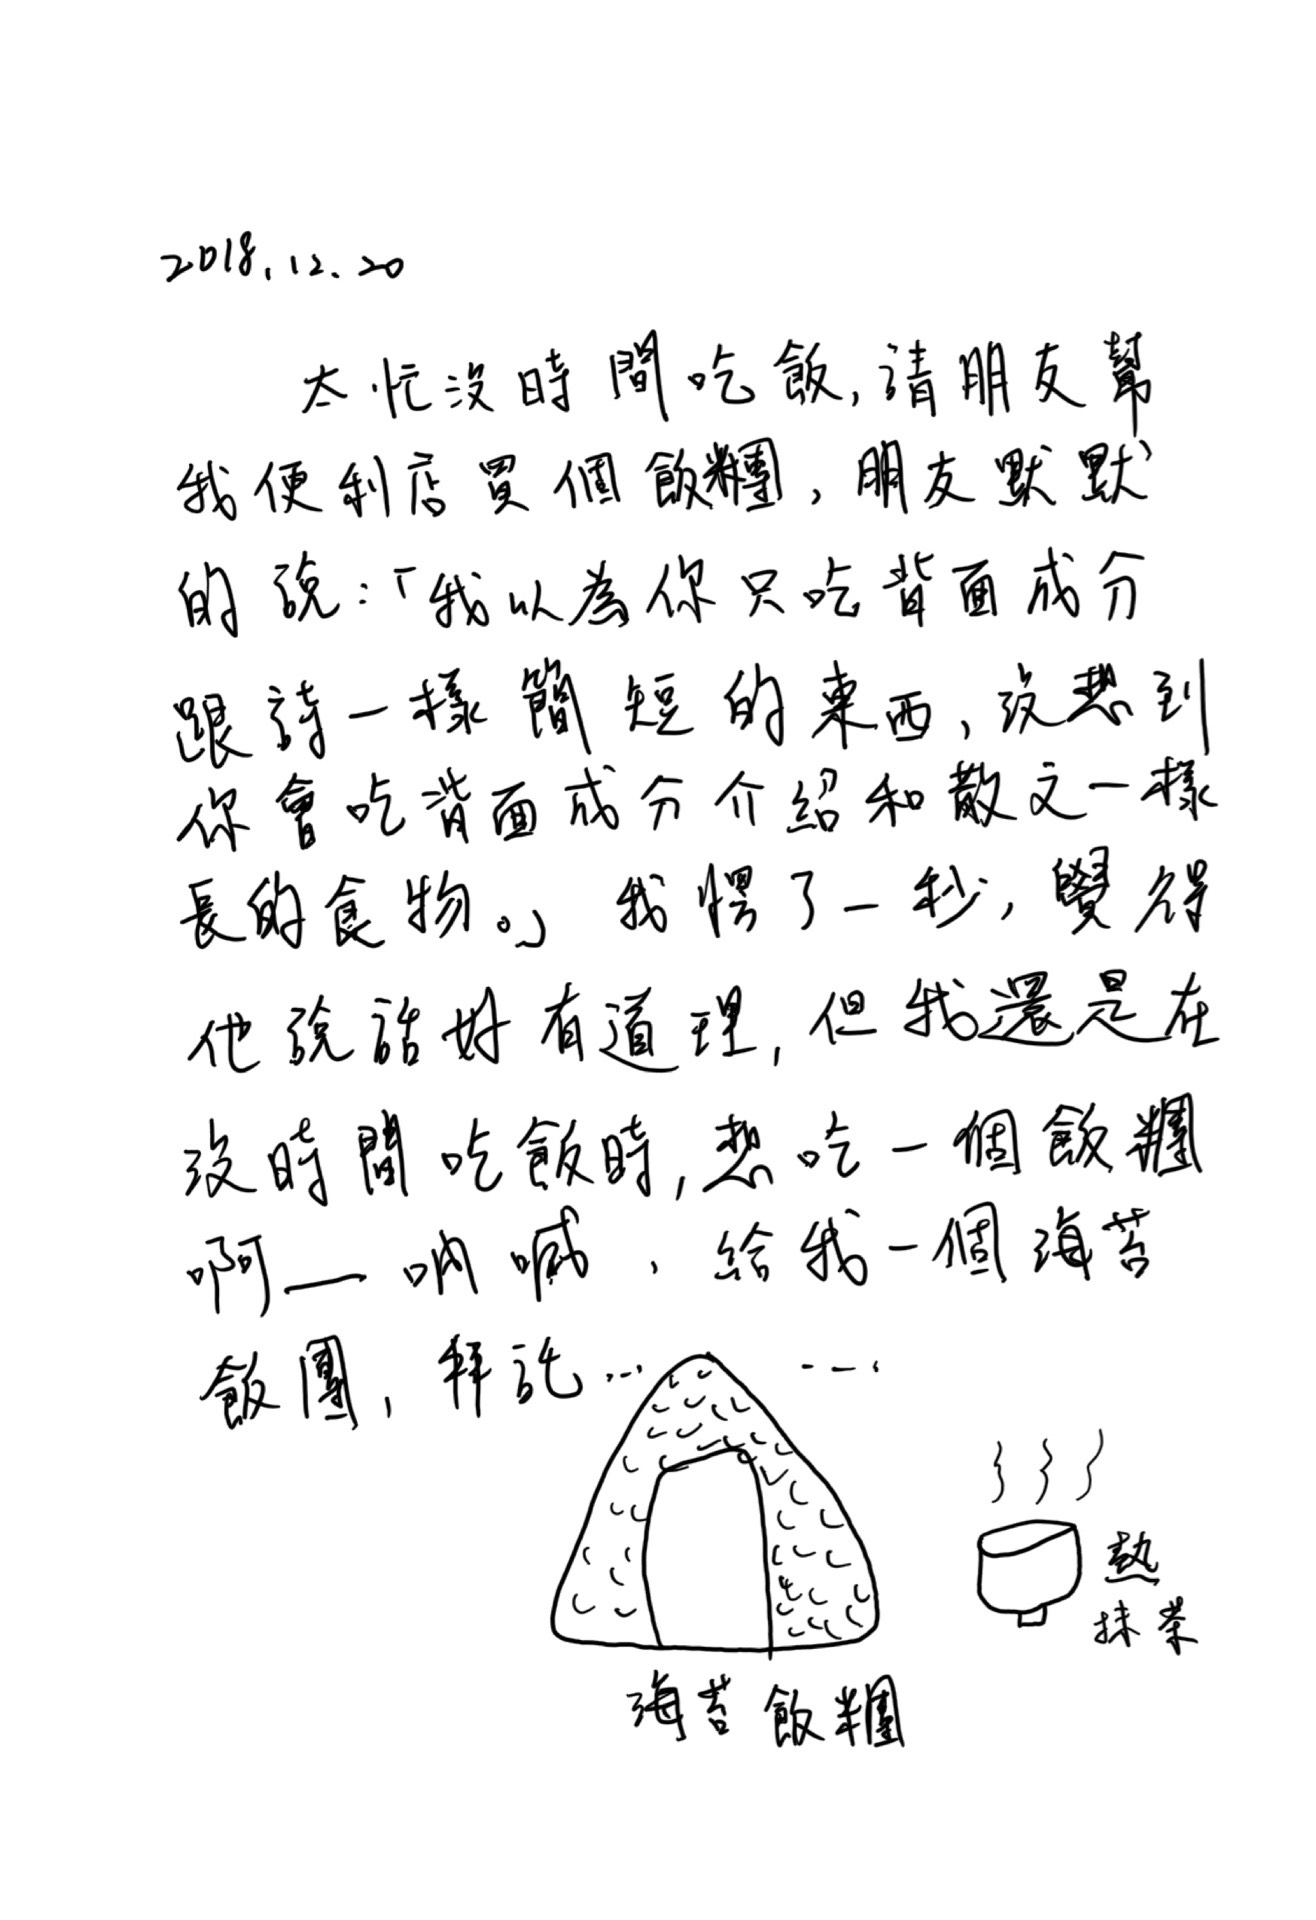 2018.12.20
太忙沒時間吃飯,請朋友幫
我便利店買個飯糰,朋友默默
的說:「我以為你只吃背面成分
跟詩一樣簡短的東西,沒想到
你會吃背面成分介紹和散文一樣
長的食物。」我愣了一秒,覺得
他說話好有道理,但我還是在
沒時間吃飯時,想吃一個飯糰
啊—吶喊、給我一個海苔
飯團,拜託... ....
熱
抹茶
海苔飯糰